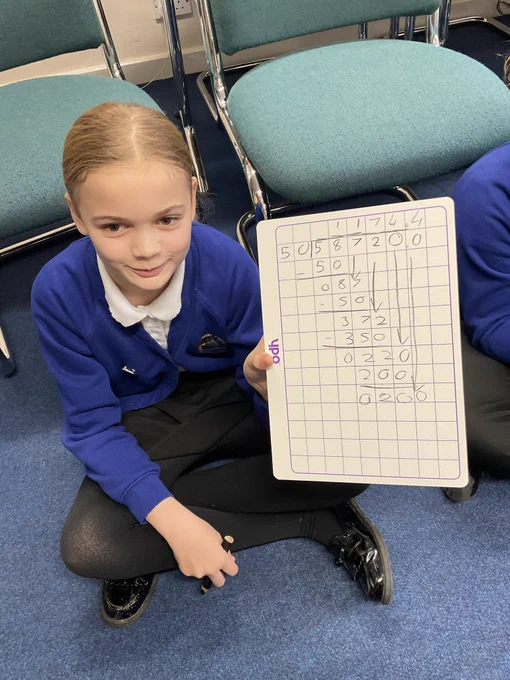 1 1 7 4 . 4
5 0 5 8 7 2 0 0
- 5 0
0 8 7
- 5 0
3 7 2
- 3 5 0
0 2 2 0
2 0 0
0 2 0 0
ypo